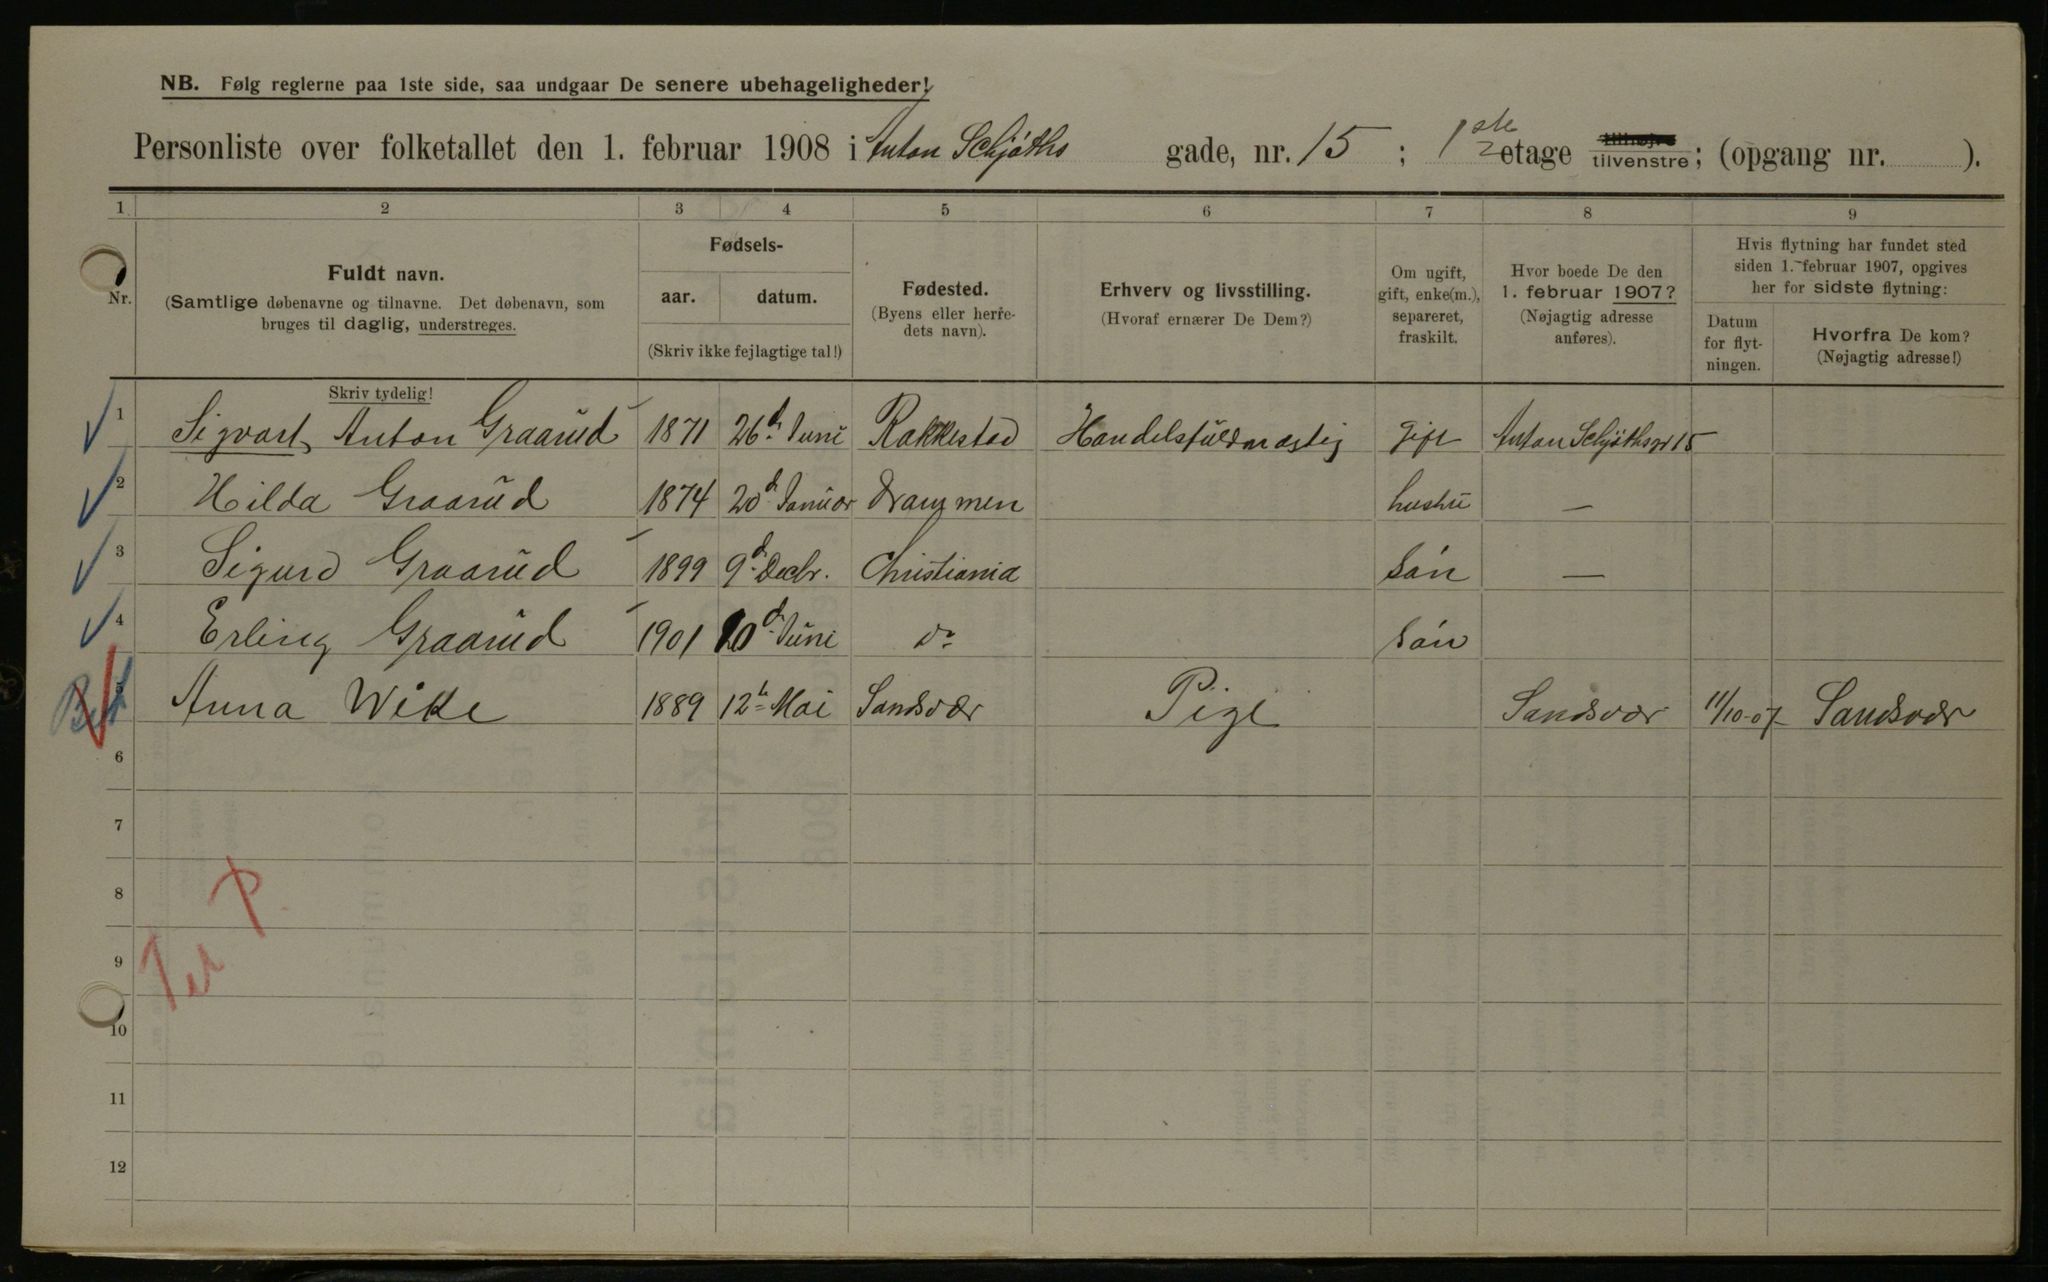 NB. Følg reglerne paa 1ste side, saa undgaar De senere ubehageligheder!
Personliste over folketallet den 1. februar 1908 i Anton Schjøths gade, nr. 15 ; 1ste etage tilhøjre tilvenstre; (opgang nr. ).
1 2 3 4 5 6 7 8 9
Nr.
Fuldt navn.
(Samtlige døbenavne og tilnavne. Det døbenavn, som
bruges til daglig, understreges.
Skriv tydelig!
Fødsels-
aar. datum.
(Skriv ikke fejlagtige tal!)
Fødested.
(Byens eller herre-
dets navn).
Erhverv og livsstilling.
(Hvoraf ernærer De Dem?)
Om ugift,
gift, enke(m.),
separeret,
fraskilt.
Hvor boede De den
1. februar 1907?
(Nøjagtig adresse
anføres).
Hvis flytning har fundet sted
siden 1. februar 1907, opgives
her for sidste flytning:
Datum
for flyt-
ningen.
Hvorfra De kom?
(Nøjagtig adresse!)
1 Sigvart Anton Graarud 1871 26d Juni Rakkestad Handelsfuldmægtig gift Anton Schjøthsgt 15
2 Hilda Graarud 1874 20d Januar Drammen hustru —
3 Sigurd Graarud 1899 9d Decbr. Christiania Søn —
4 Erling Graarud 1901 10d Juni do Søn
5 Anna Wike 1889 12te Mai Sandsvær Pige Sandsvær 11/10-07 Sandsvær
6
7
8
P.
9
10
11
12